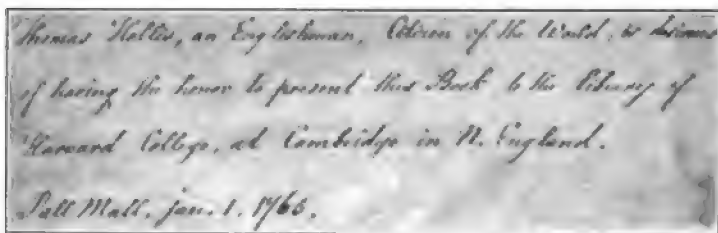 Thomas Hollis, an Englishman, Citizen of the World, is desirous
of having the honor to present this Book to the library of
Harvard College, at Cambridge in N. England.
Pall Mall, jan. 1, 176